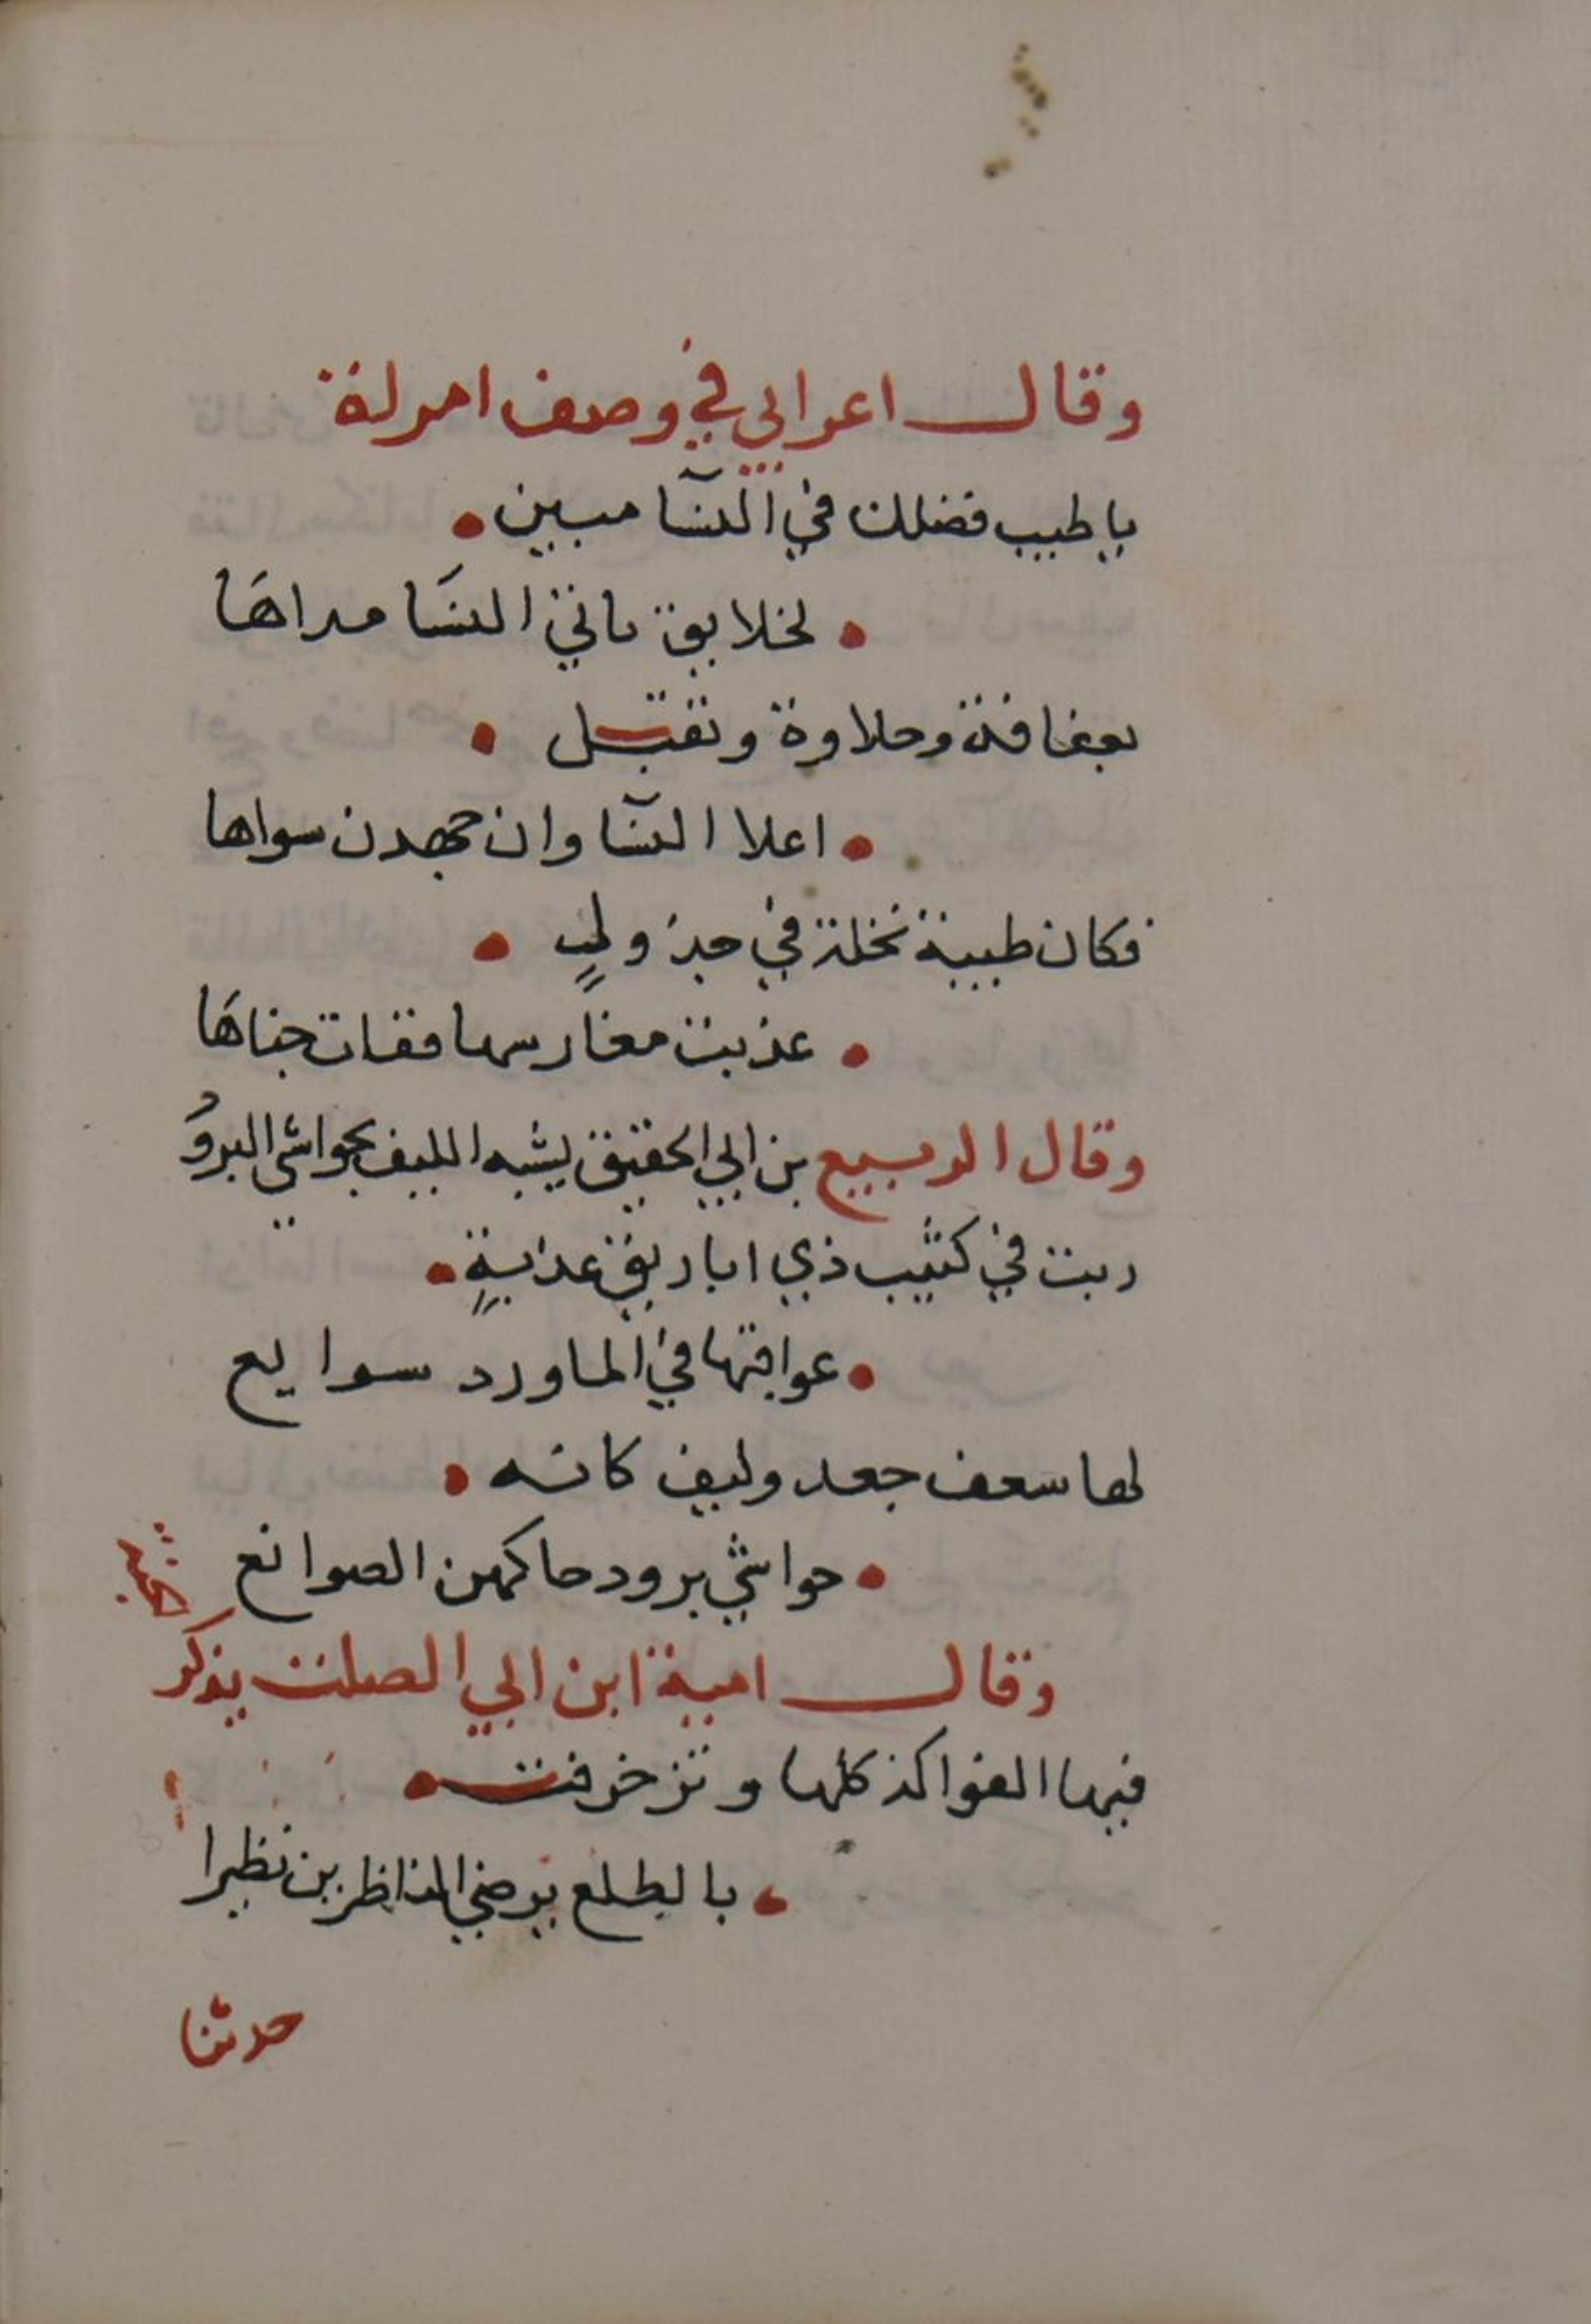 وقال اعرابي في وصف امراة
يا طيب فضلك في النسآ مبين
لخلايق تاتي النسا مداها
بعفافة وحلاوة وتقتل
اعلا النسآ وان جهدن سواها
فكان طيبة نخلة في جدولٍ
عذبت مغارسها ففات جناها
وقال الربيع بن ابي الحقيق يشبه الليف بحواشي البرود
ربت في كثيب ذي اباريق عذابةٍ
عواقبها في الما ورد سوايع
لها سعف جعد وليف كانه
حواشي برود حاكهن الصوانع
وقال امية ابن ابي الصلت يذكر
الجنة
فيها الفواكه كلها وتزخرفت
بالطلع يرضي الناظرين نظيرا
حدثنا